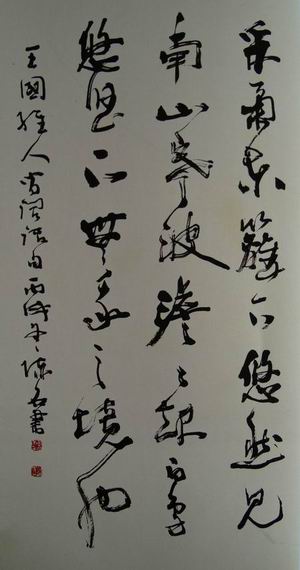 采菊東籬下悠然見
南山寒波澹々起白鳥
悠悠下無我之境也
王國維人間詞話句丙戌年陳書